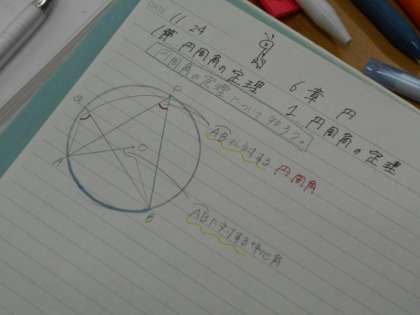 11.24
6章 円
1.円周角の定理
円周角の定理
円周角の定理について知ろう。
Q
P
O
A
B
ABに対する円周角
ABに対する中心角